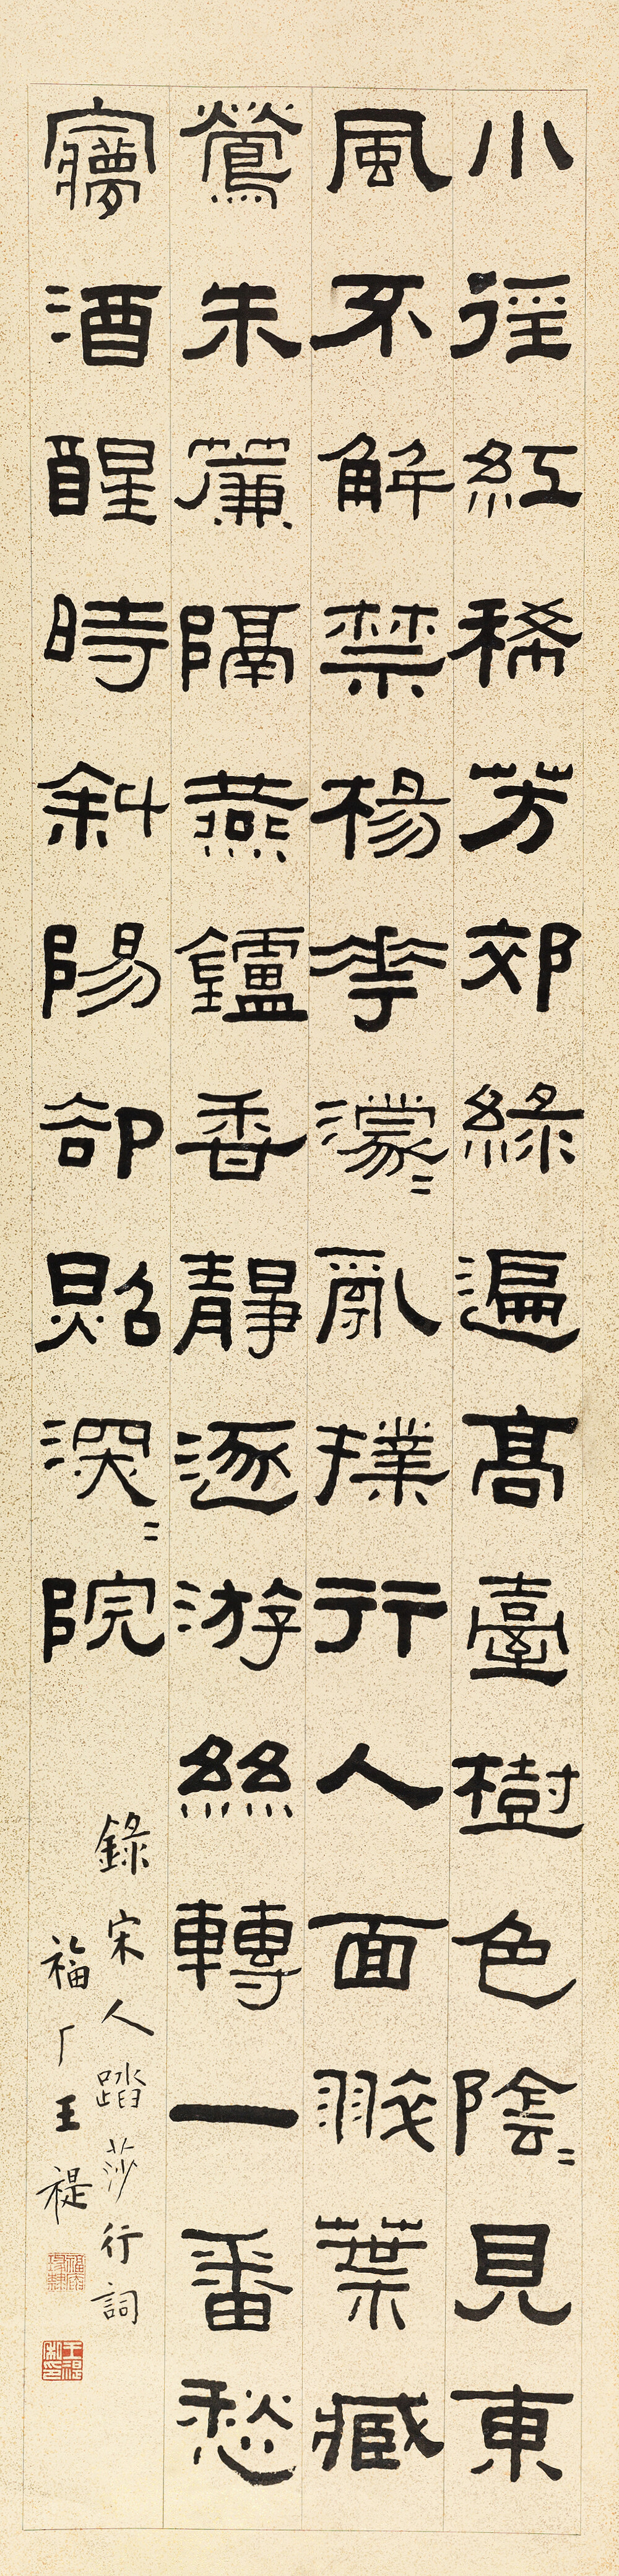 小徑紅稀芳郊綠遍高臺樹色陰〻見東
風不解禁楊花濛〻亂撲行人面翠葉臧
鶯朱簾隔燕鑪香靜逐游絲轉一番愁
夢酒醒時斜陽卻照深〻院
錄宋人踏莎行詞
福厂王禔
王禔私印